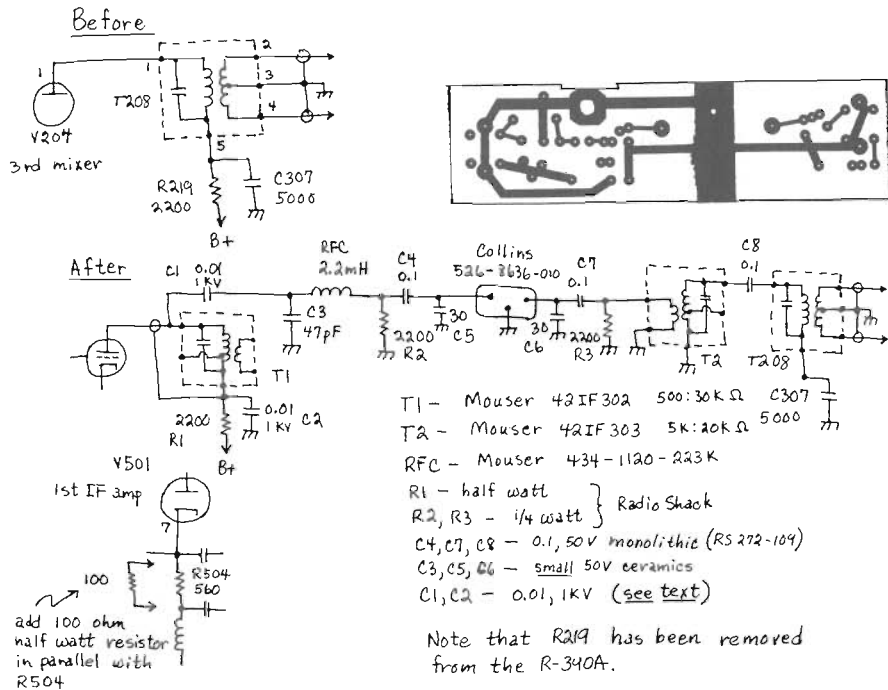 Before
1
1
2
3
4
5
T208
V207
3rd mixer
R219
2200
C307
5000
B+
After
C1
0.01
1 KV
RFC
2.2mH
C3
47pF
C4
0.1
2200
R2
30
C5
Collins
526-8636-010
30
C6
C7
0.1
2200
R3
T2
C8
0.1
T208
C307
5000
T1
2200
R1
0.01
1 KV
C2
B+
V501
1st IF amp
7
100
R504
560
add 100 ohm
half watt resistor
in parallel with
R504
T1 - Mouser 42IF302 500:30K Ω
T2 - Mouser 42IF303 5K:20K Ω
RFC - Mouser 434-1120-223K
R1 - half watt
R2, R3 - 1/4 watt
Radio Shack
C4, C7, C8 - 0.1, 50V monolithic (RS 272-109)
C3, C5, C6 - small 50V ceramics
C1, C2 - 0.01, 1KV (see text)
Note that R219 has been removed
from the R-390A.